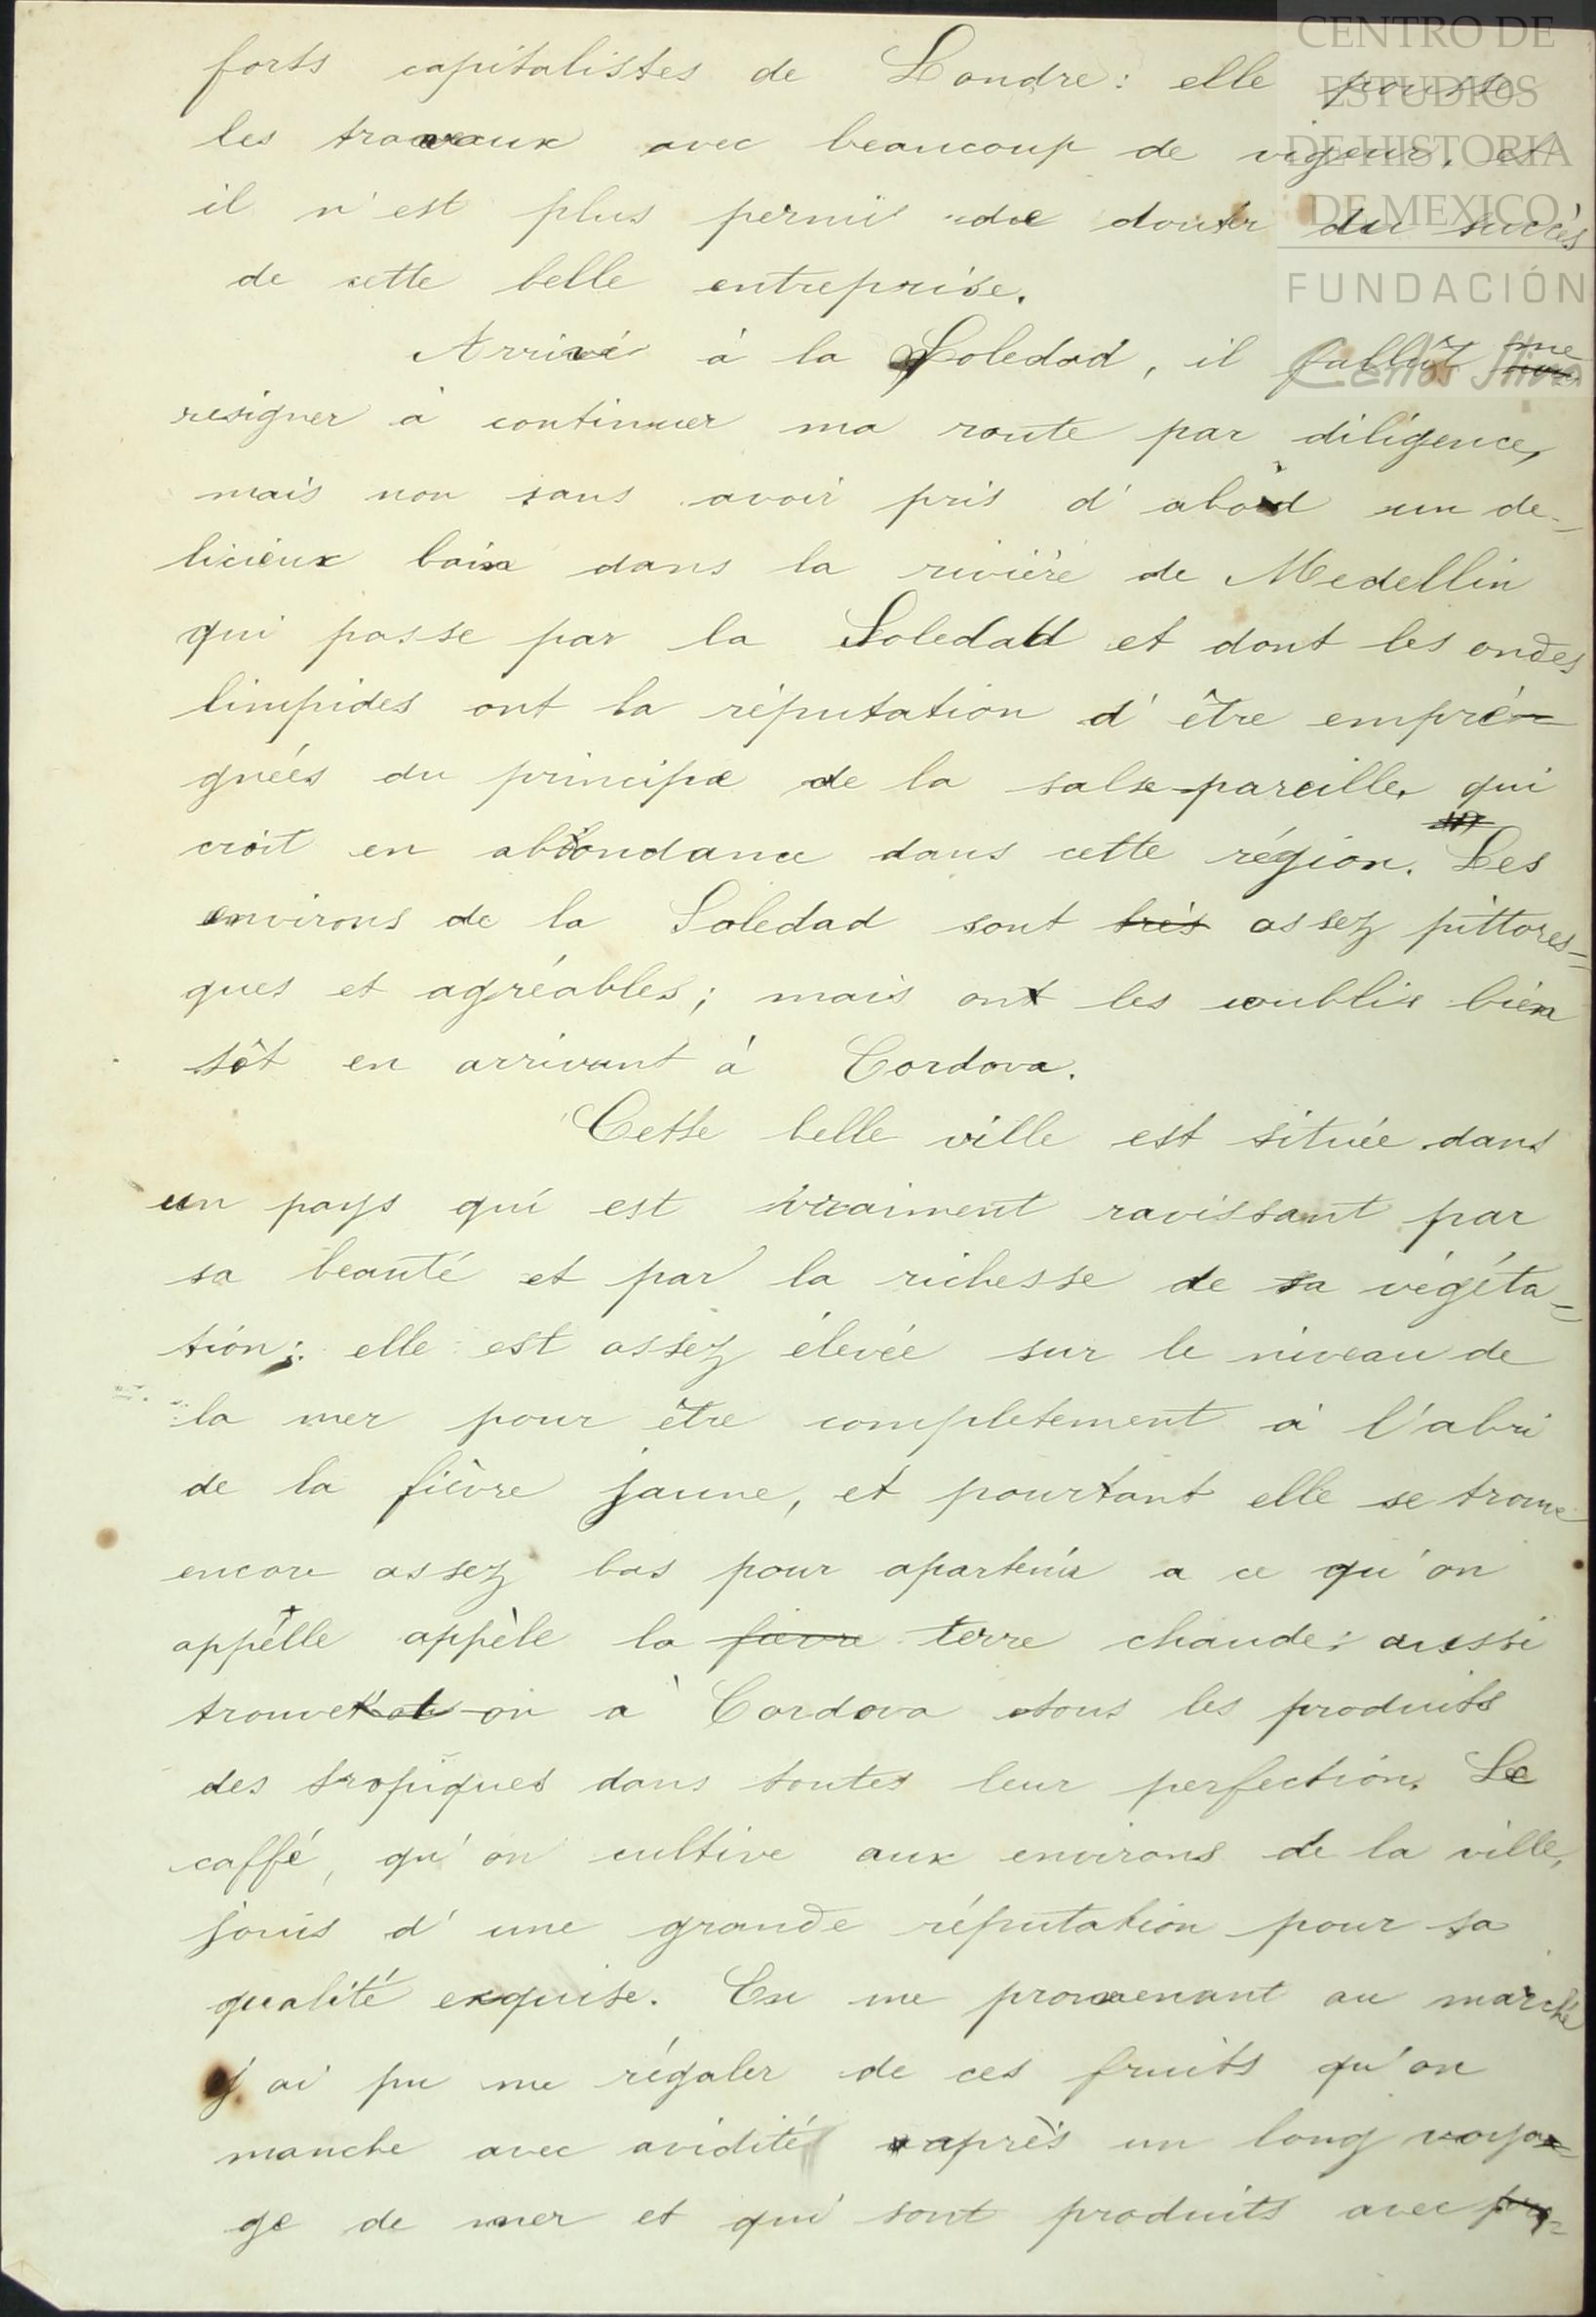 CENTRO DE
ESTUDIOS
DE HISTORIA
DE MEXICO
FUNDACIÓN
Carlos Slim
forts capitalistes de Londre: elle pousse
les travaux avec beaucoup de vigeur, et
il n'est plus permis de douter du succès
de cette belle entreprise.
Arrivé à la Soledad, il fallût me
resigner à continuer ma route par diligence,
mais non sans avoir pris d'abord un de-
licieux bain dans la rivière de Medellin
qui passe par la Soledad et dont les ondes
limpides ont la réputation d'être empré-
gnées du principe de la salse-pareille, qui
croit en abondance dans cette région. Les
environs de la Soledad sont très assez pittores=
ques et agréables; mais ont les oublie bien
tôt en arrivant à Cordova.
Cette belle ville est située dans
un pays qui est vraiment ravissant par
sa beauté et par la richesse de sa végéta=
tión; elle est assez élevée sur le niveau de
la mer pour être completement à l'abri
de la fièvre jaune, et pourtant elle se trouve
encore assez bas pour apartenir a ce qu'on
appèlle appèle la fievre terre chaude: aussi
trouve-t-on à Cordova tous les produits
des tropiques dans toutes leur perfection. Le
caffé, qu'on cultive aux environs de la ville,
jouis d'une grande réputation pour sa
qualité exquise. En me promenant au marché
j'ai pu me régaler de ces fruits qu'on
manche avec avidité après un long voya=
ge de mer et qui sont produits avec